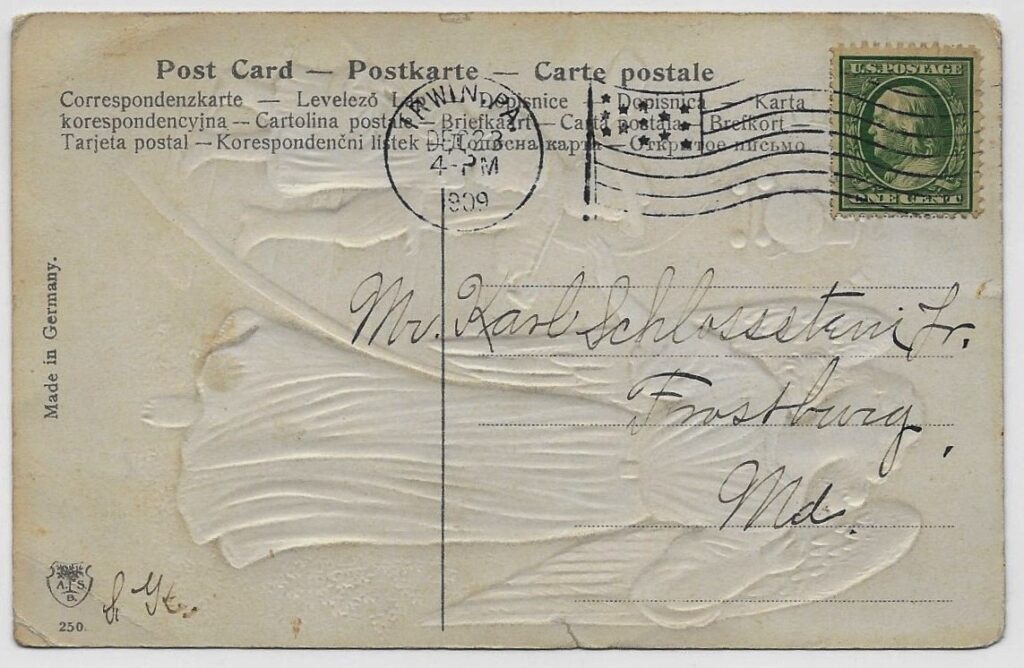 Post Card — Postkarte — Carte postale
Correspondenzkarte — Levelező L — Dopisnice — Dopisnica — Karta
korespondencyjna — Cartolina postale — Briefkaart — Carta postala — Brefkort —
Tarjeta postal — Korespondenční listek — Дописна карта — Открытое письмо
U.S. POSTAGE
IRWIN, PA
DEC 23
4-PM
1909
ONE CENT
Made in Germany.
Mr. Karl Schlossstein Jr.
Frostburg,
Md.
A S
B.
250.